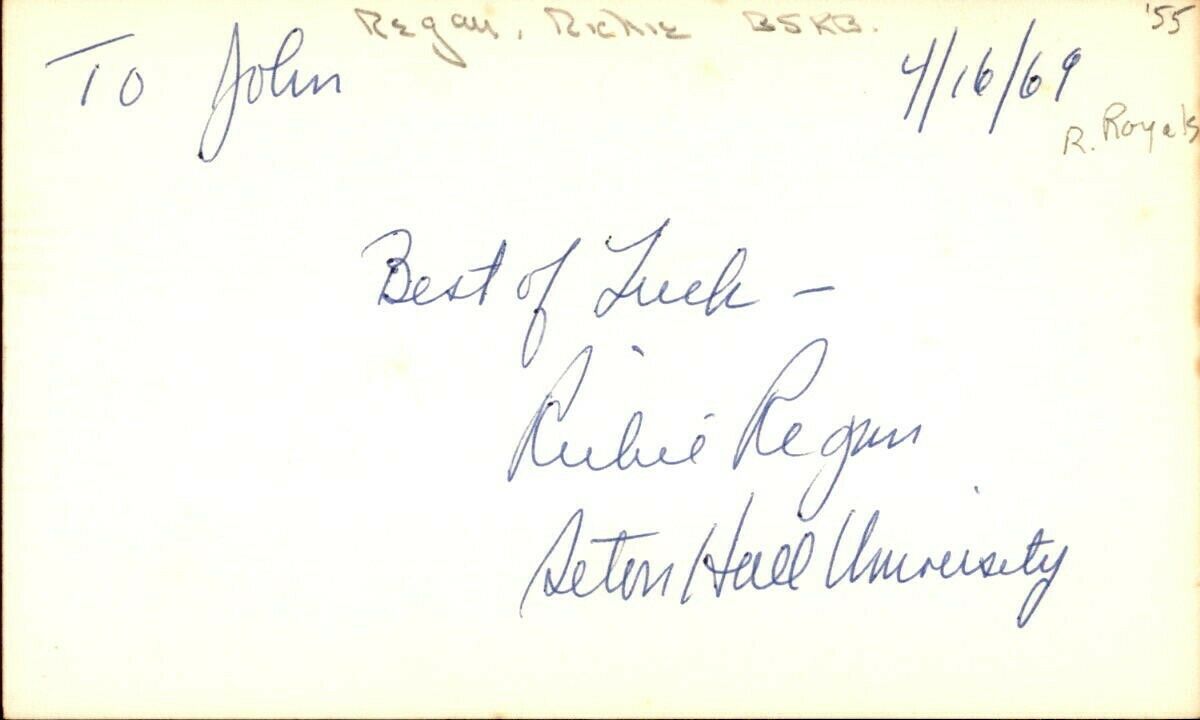 Regan, Richie BSKB. '55
To John 4/16/69
R. Royals
Best of Luck —
Richie Regan
Seton Hall University